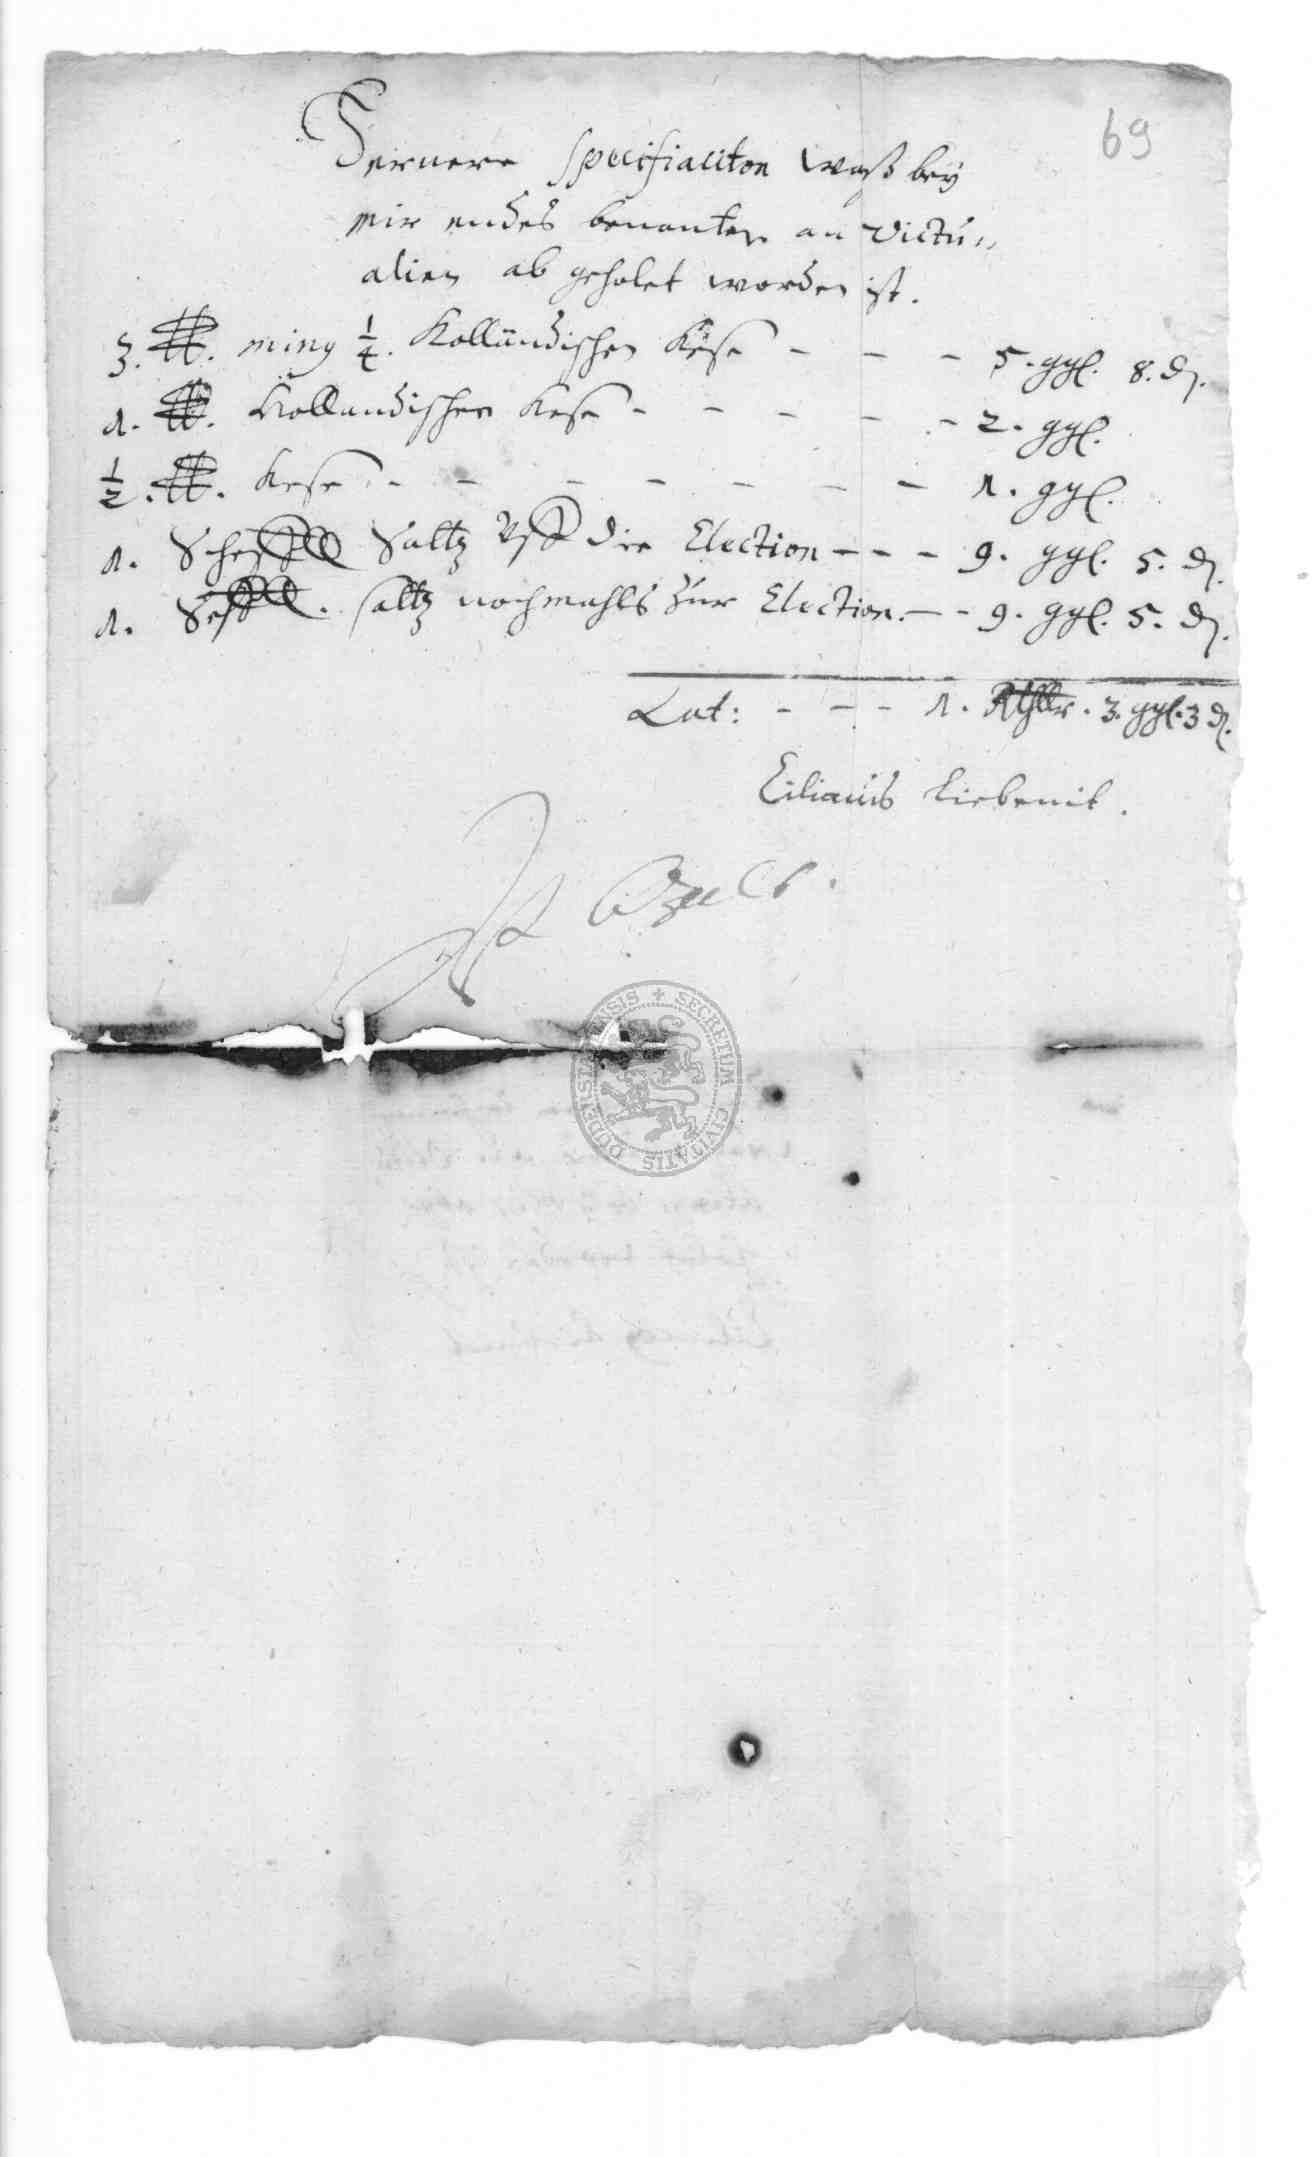 69
Fernere Specifiaciton waß bey
mir endes benanten an Victu„
alien ab geholet worden ist.
3. ℔. ming ¼. Holländischen Käse - - - 5. ggl. 8. ₰.
1. ℔. Hollandischen Kese - - - - - 2. ggl.
½. ℔. Kese - - - - - - - 1. ggl.
1. Scheffell Saltz Vff die Election - - - 9. ggl. 5. ₰.
1. Scffell. saltz nochmahls zur Election. - - 9. ggl. 5. ₰.
Lat: - - - 1. Rthllr. 3. ggl. 3 ₰.
Liebenit.
Ist
SECRETUM CIVITATIS DUDERSTATENSIS